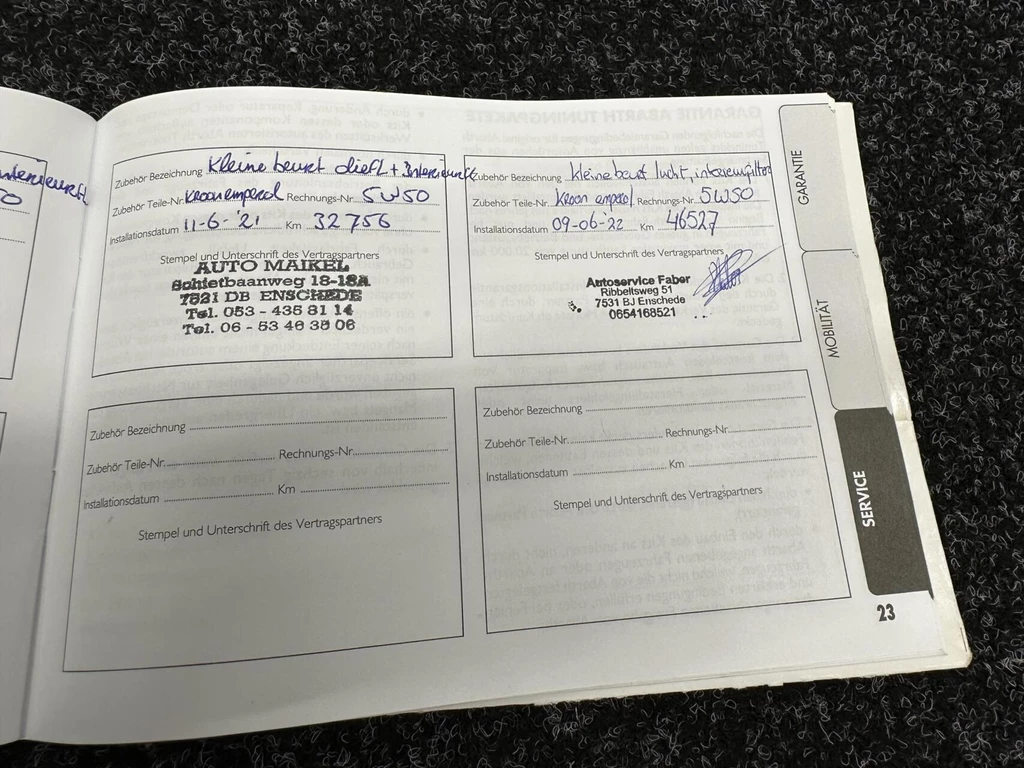 Zubehör Bezeichnung Kleine beurt
Zubehör Teile-Nr. Kroon Rechnungs-Nr. 5W50
Installationsdatum 11-6-'21 Km 32756
Stempel und Unterschrift des Vertragspartners
AUTO MAIKEL
Schietbaanweg 18-18A
7521 DB ENSCHEDE
Tel. 053 - 435 81 14
Tel. 06 - 53 46 38 06
Zubehör Bezeichnung kleine beurt lucht,
Zubehör Teile-Nr. Kroon Rechnungs-Nr. 5W50
Installationsdatum 09-06-'22 Km 46527
Stempel und Unterschrift des Vertragspartners
Autoservice Faber
Ribbeltsweg 51
7531 BJ Enschede
0654168521
Zubehör Bezeichnung
Zubehör Teile-Nr. Rechnungs-Nr.
Installationsdatum Km
Stempel und Unterschrift des Vertragspartners
Zubehör Bezeichnung
Zubehör Teile-Nr. Rechnungs-Nr.
Installationsdatum Km
Stempel und Unterschrift des Vertragspartners
GARANTIE
MOBILITÄT
SERVICE
23